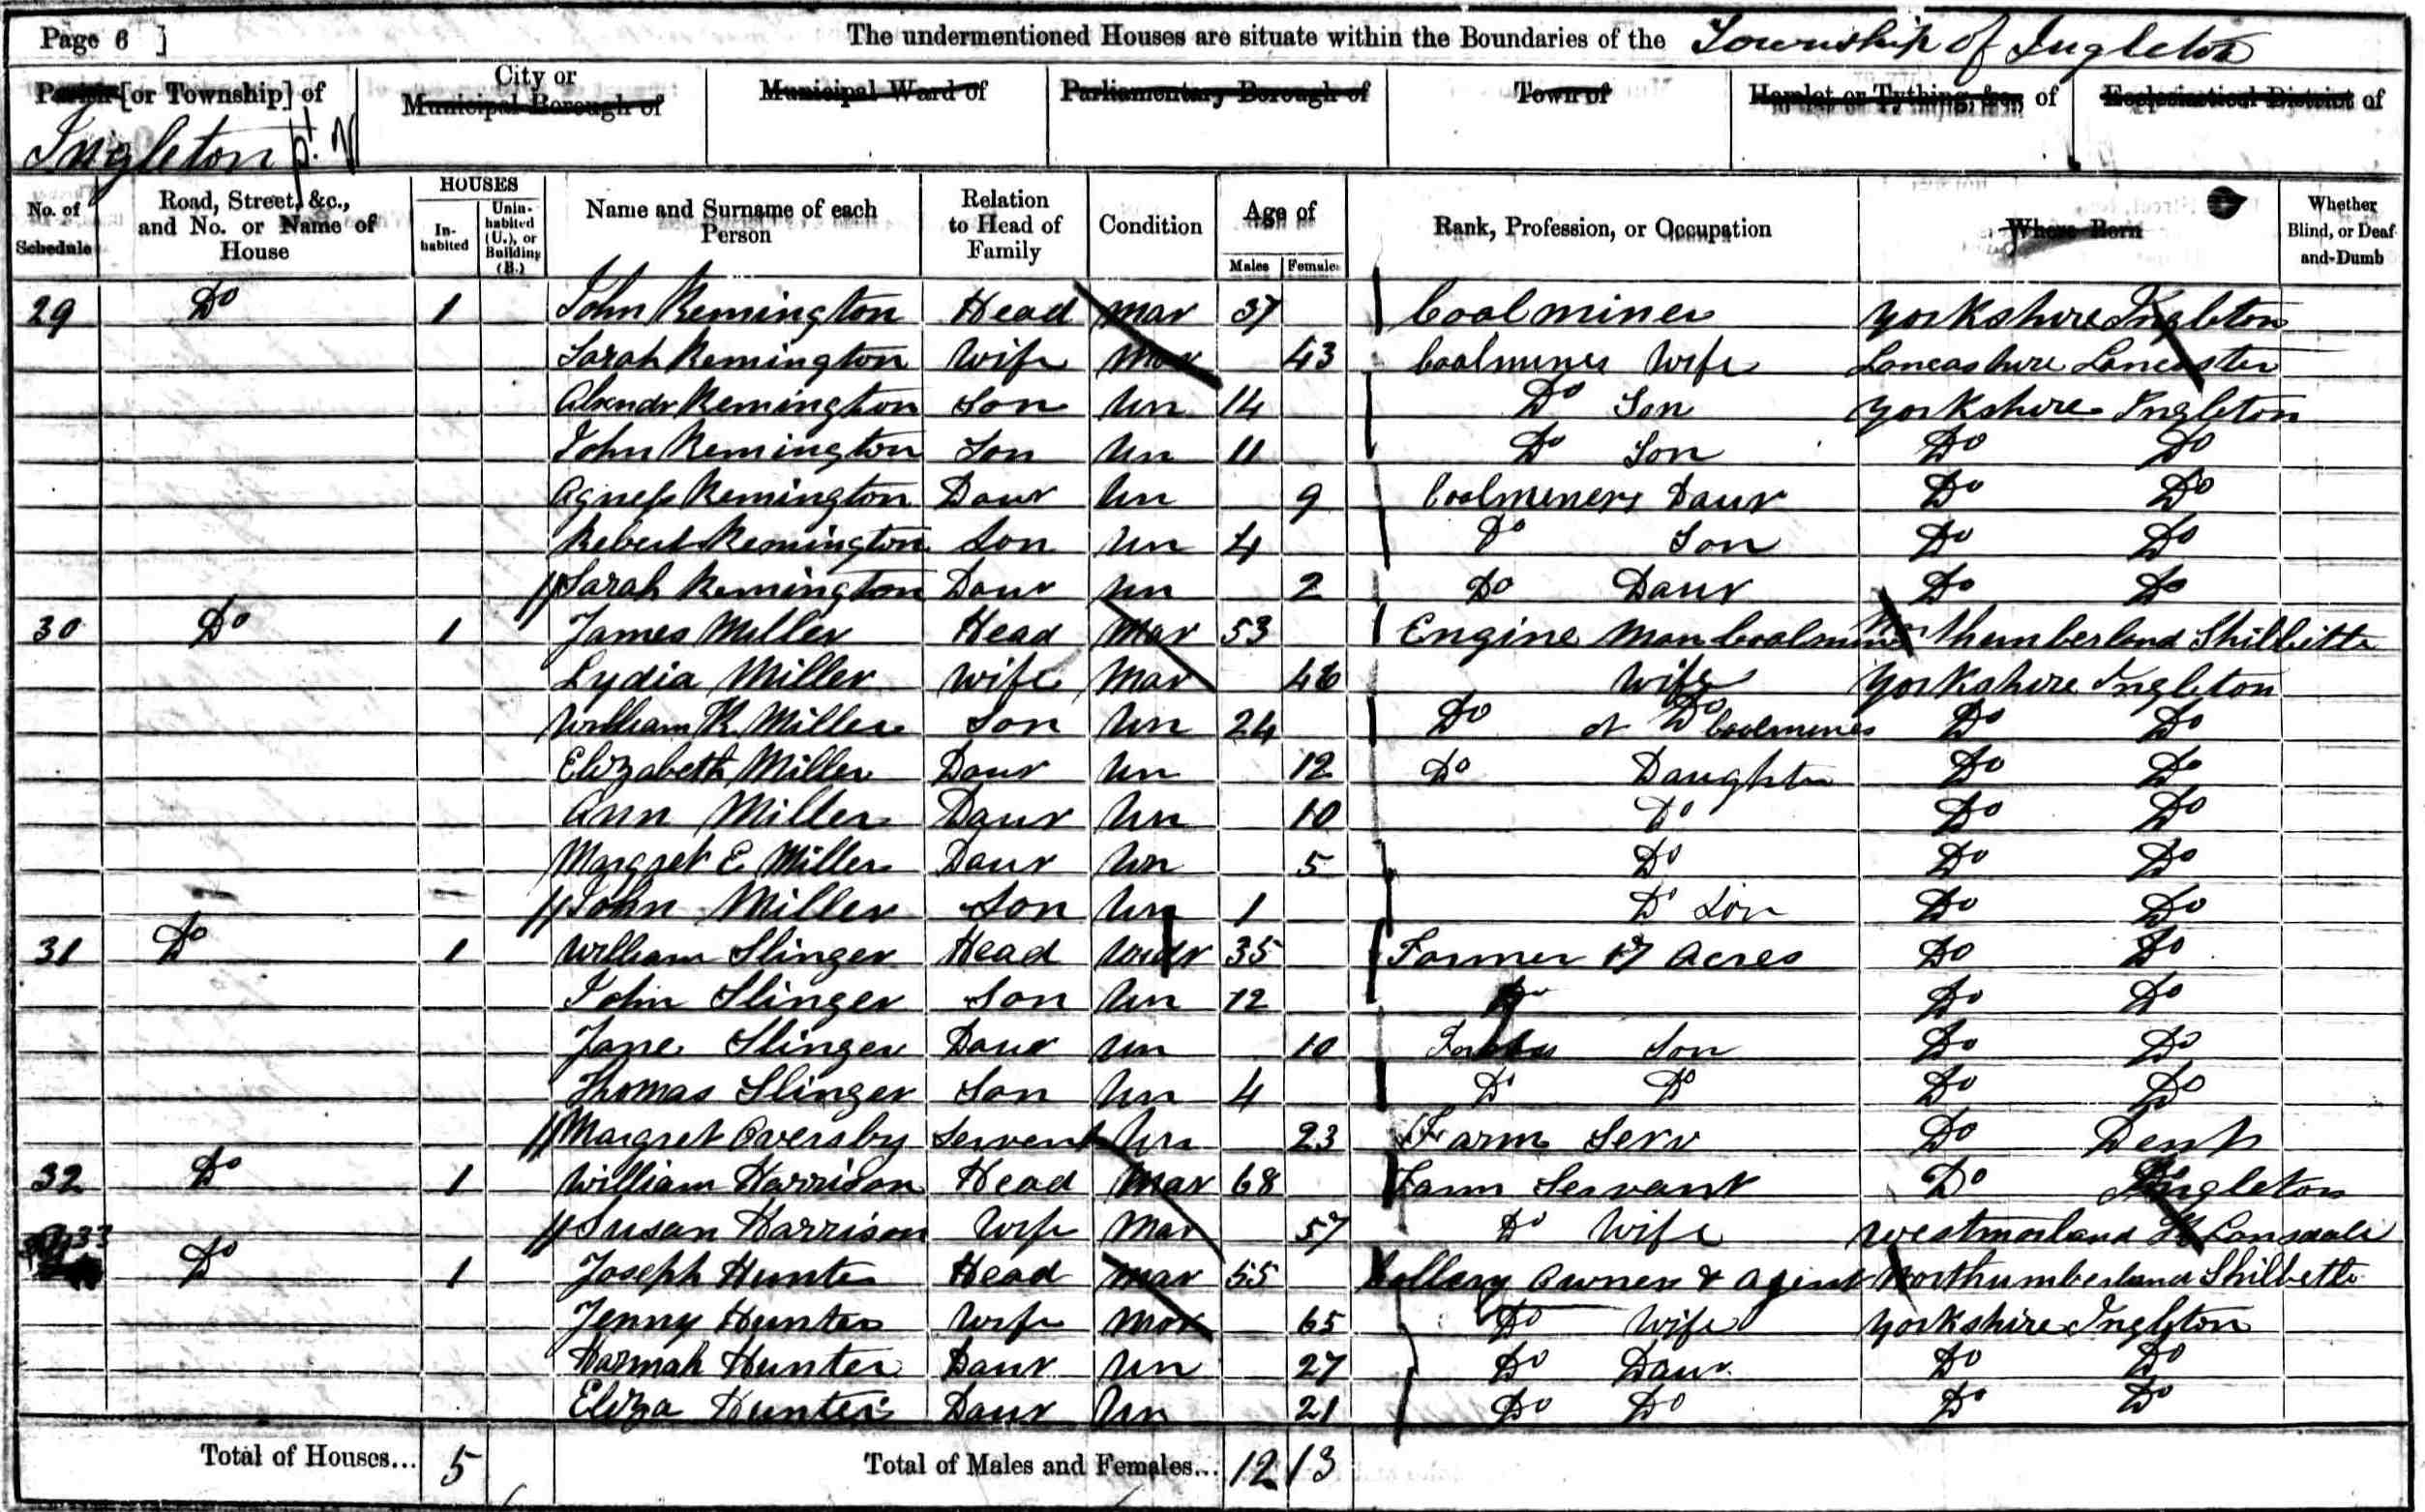 Page 6 ] The undermentioned Houses are situate within the Boundaries of the Township of Ingleton
Parish [or Township] of City or Municipal Borough of Municipal Ward of Parliamentary Borough of Town of Hamlet or Tything, &c., of Ecclesiastical District of
Ingleton pt
No. of Schedule Road, Street, &c., and No. or Name of House HOUSES In-habited Unin-habited (U.), or Building (B.) Name and Surname of each Person Relation to Head of Family Condition Age of Males Females Rank, Profession, or Occupation Where Born Whether Blind, or Deaf-and-Dumb
29 Do 1 John Remington Head Mar 37 Coalminer Yorkshire Ingleton
Sarah Remington Wife Mar 43 Coalminers Wife Lancashire Lancaster
Remington Son Un 14 Do Son Yorkshire Ingleton
John Remington Son Un 11 Do Son Do Do
Agness Remington Daur Un 9 Coalminers Daur Do Do
Robert Remington Son Un 4 Do Son Do Do
// Sarah Remington Daur Un 2 Do Daur Do Do
30 Do 1 James Miller Head Mar 53 Engine Man Coalmine Northumberland
Lydia Miller Wife Mar 46 Wife Yorkshire Ingleton
William R Miller Son Un 24 Do Do Coalmines Do Do
Elizabeth Miller Daur Un 12 Do Daughter Do Do
Ann Miller Daur Un 10 Do Do Do
Margret E Miller Daur Un 5 Do Do Do
// John Miller Son Un 1 Do Son Do Do
31 Do 1 William Slinger Head Widr 35 Farmer 17 Acres Do Do
John Slinger Son Un 12 Do Do
Jane Slinger Daur Un 10 Son Do Do
Thomas Slinger Son Un 4 Do Do Do Do
// Margret Oversby Servent Un 23 Farm Serv Do Dent
32 Do 1 William Harrison Head Mar 68 Farm Servant Do Ingleton
// Susan Harrison Wife Mar 57 Do Wife Westmorland K Lonsdale
33 Do 1 Joseph Hunter Head Mar 55 Collery Owner & Agent Northumberland Shilbottle
Jenny Hunter Wife Mar 65 Do Wife Yorkshire Ingleton
Hannah Hunter Daur Un 27 Do Daur Do Do
Eliza Hunter Daur Un 21 Do Do Do Do
Total of Houses... 5 Total of Males and Females... 12 13